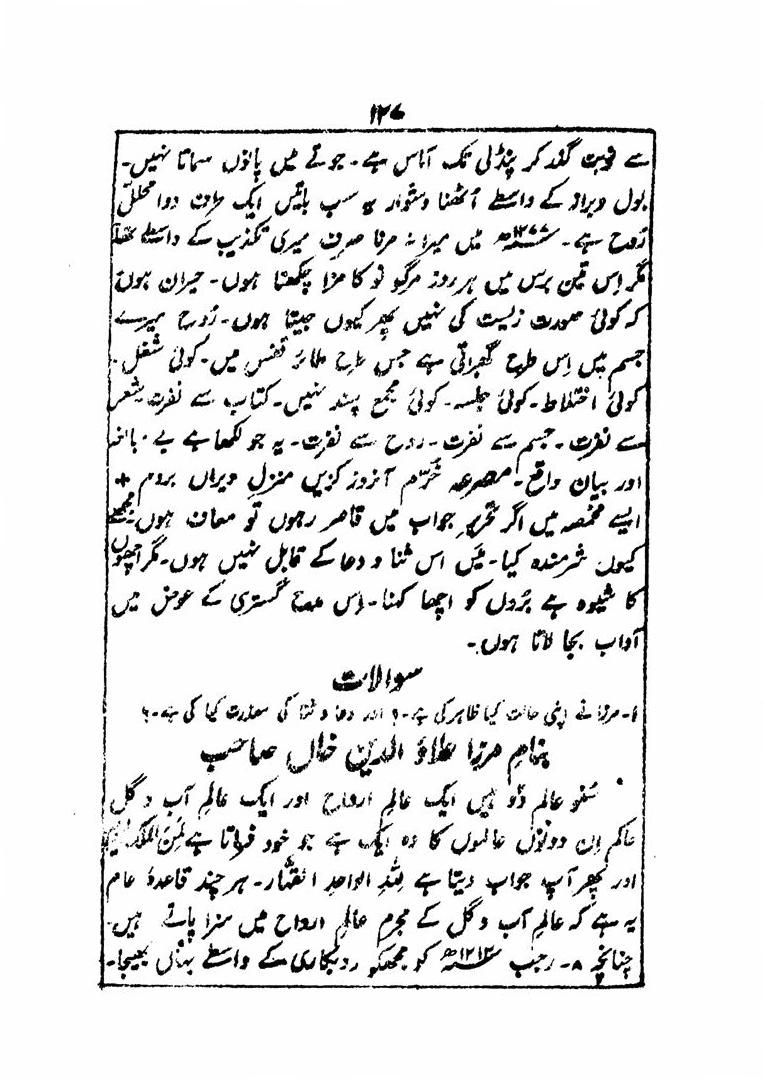 ۱۲۷
سے نوبت گذر کر پنڈلی تک آماس ہے۔ جوتے میں پانوں سماتا نہیں۔
بول و براز کے واسطے اُٹھنا دشوار یہ سب باتیں ایک طرف درد محلل
رُوح ہے۔ ۱۲۷۷ھ میں میرا نہ مرنا صرف میری تکذیب کے واسطے تھا
مگر اِس تین برس میں ہر روز مرگِ نو کا مزا چکھتا ہوں۔ حیران ہوں
کہ کوئی صورت زیست کی نہیں پھر کیوں جیتا ہوں۔ رُوح میرے
جسم میں اِس طرح گھبراتی ہے جس طرح طائر قفس میں۔ کوئی شغل۔
کوئی اختلاط۔ کوئی جلسہ۔ کوئی مجمع پسند نہیں۔ کتاب سے نفرت شعر
سے نفرت۔ جسم سے نفرت۔ روح سے نفرت۔ یہ جو لکھا ہے بے مبالغہ
اور بیان واقع۔ مصرعہ خرّم آنروز کزیں منزلِ ویراں بروم +
ایسے مخمصہ میں اگر تحریرِ جواب میں قاصر رہوں تو معاف ہوں۔ مجھے
کیوں شرمندہ کیا۔ میں اس ثنا و دعا کے قابل نہیں ہوں۔ مگر اچھوں
کا شیوہ ہے بُروں کو اچھا کہنا۔ اِس مدح گستری کے عوض میں
آداب بجا لاتا ہوں۔
سوالات
۱۔ مرزا نے اپنی حالت کیا ظاہر کی ہے۔؟ اور دعا و ثنا کی معذرت کیا کی ہے۔؟
بنامِ مرزا علاؤ الدین خاں صاحب
سُنو عالم دُو ہیں ایک عالمِ ارواح اور ایک عالمِ آب و گل
حاکم اِن دونوں عالموں کا وہ ایک ہے جو خود فرماتا ہے لِمَنِ الملک الیوم
اور پھر آپ جواب دیتا ہے لِلّٰہِ الواحدِ القہّار۔ ہر چند قاعدۂ عام
یہ ہے کہ عالمِ آب و گل کے مجرم عالمِ ارواح میں سزا پاتے ہیں۔
چنانچہ ۸۔ رجب ۱۲۱۲ھ کو مجھکو روبکاری کے واسطے یہاں بھیجا۔